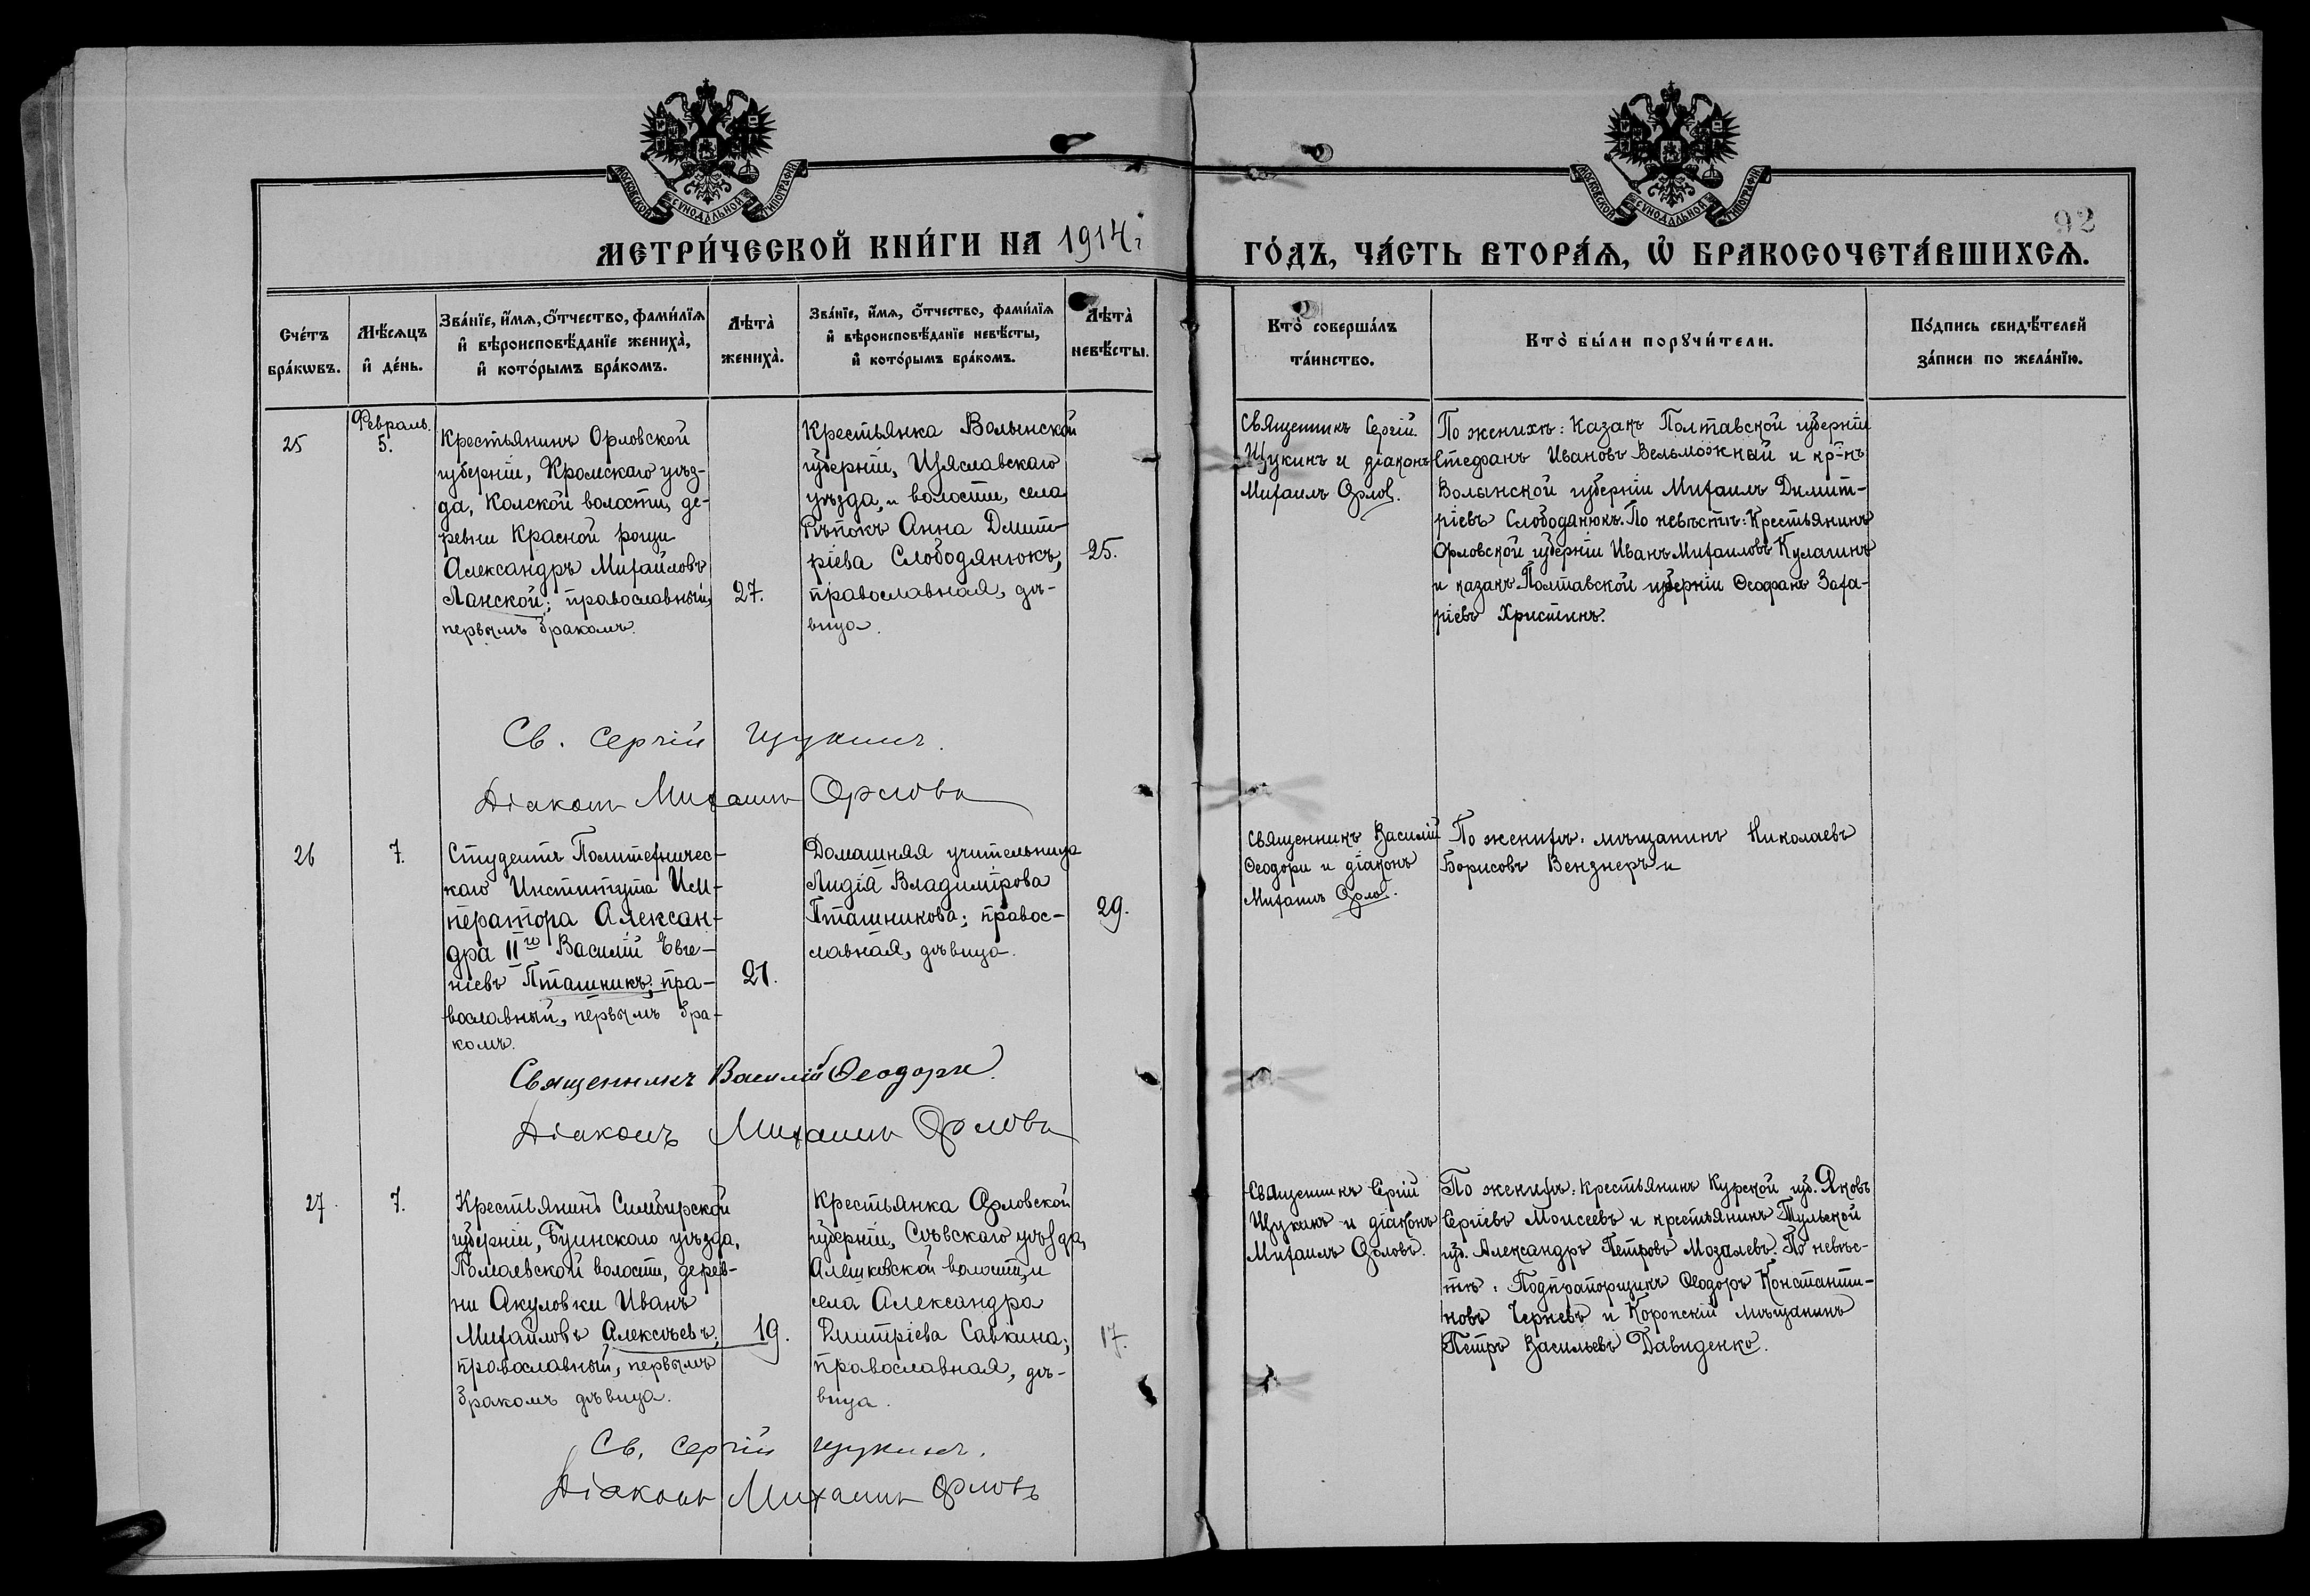 МОСКОВСКОЙ СѴНОДАЛЬНОЙ ТИПОГРАФІИ
МОСКОВСКОЙ СѴНОДАЛЬНОЙ ТИПОГРАФІИ
92
МЕТРИ́ЧЕСКОЙ КНИ́ГИ НА 1914 г.
ГО́ДЪ, ЧА́СТЬ ВТОРА́Ѧ, Ѡ҆ БРАКОСОЧЕТА́ВШИХСѦ.
Сче́тъ
бра́кѡвъ.
Мѣ́сѧцъ
и҆ де́нь.
Зва́нїе, и҆́мѧ, о҆́тчество, фами́лїѧ
и҆ вѣроисповѣ́данїе жениха̀,
и҆ кото́рымъ бра́комъ.
Лѣта̀
жениха̀.
Зва́нїе, и҆́мѧ, о҆́тчество, фами́лїѧ
и҆ вѣроисповѣ́данїе невѣ́сты,
и҆ кото́рымъ бра́комъ.
Лѣта̀
невѣ́сты.
Кто̀ соверша́лъ
та́инство.
Кто̀ бы́ли порꙋчи́тели.
По́дпись свидѣ́телей
за́писи по жела́нїю.
25
Февраль.
5.
Крестьянинъ Орловской
губерніи, Кромскаго уѣз-
да, Колской волости, де-
ревни Красной рощи
Александръ Михайловъ
Ланской; православный,
первымъ бракомъ.
27.
Крестьянка Волынской
губерніи, Изяславскаго
уѣзда, и волости, села
Рѣпокъ Анна Дмит-
ріева Слободянюкъ,
православная, дѣ-
вица.
25.
Священникъ Сергій
Щукинъ и діаконъ
Михаилъ Орлов.
По женихѣ: Казакъ Полтавской губерніи
Стефанъ Ивановъ Вельможный и кр-нъ
Волынской губерніи Михаилъ Димит-
ріевъ Слободянюкъ. По невѣстѣ: Крестьянинъ
Орловской губерніи Иванъ Михаиловъ Кулагинъ
и казакъ Полтавской губерніи Ѳеофанъ Заха-
ріевъ Христинъ.
Св. Сергій Щукинъ.
Діаконъ Михаилъ Орловъ
26
7.
Студентъ Политехничес-
каго Института Им-
ператора Алексан-
дра II го Василій Евге-
ніевъ Пташникъ; пра-
вославный, первымъ бра-
комъ.
21.
Домашняя учительница
Лидія Владимірова
Пташникова; правос-
лавная, дѣвица.
29.
Священникъ Василій
Ѳеодори и діаконъ
Михаилъ Орлов.
По женихѣ: мѣщанинъ Николаевъ
Борисовъ Вензнеръ и
Священникъ Василій Ѳеодори.
Діаконъ Михаилъ Орловъ
27.
7.
Крестьянинъ Симбирской
губерніи, Буинскаго уѣзда,
Помаевской волости, дерев-
ни Акуловки Иванъ
Михайловъ Алексѣевъ;
православный, первымъ
бракомъ дѣвица.
19.
Крестьянка Орловской
губерніи, Сѣвскаго уѣзда,
Алешковской волости, и
села Александра
Димитріева Савкина;
православная, дѣ-
вица.
17.
Священникъ Сергій
Щукинъ и діаконъ
Михаилъ Орловъ.
По женихѣ: Крестьянинъ Курской губ. Яковъ
Сергіевъ Моисеевъ и крестьянинъ Тульской
губ. Александръ Петровъ Мозалевъ. По невѣс-
тѣ: Подпрапорщикъ Ѳеодоръ Константи-
новъ Черневъ и Коропскій мѣщанинъ
Петръ Васильевъ Давиденко.
Св. Сергій Щукинъ.
Діаконъ Михаилъ Орловъ